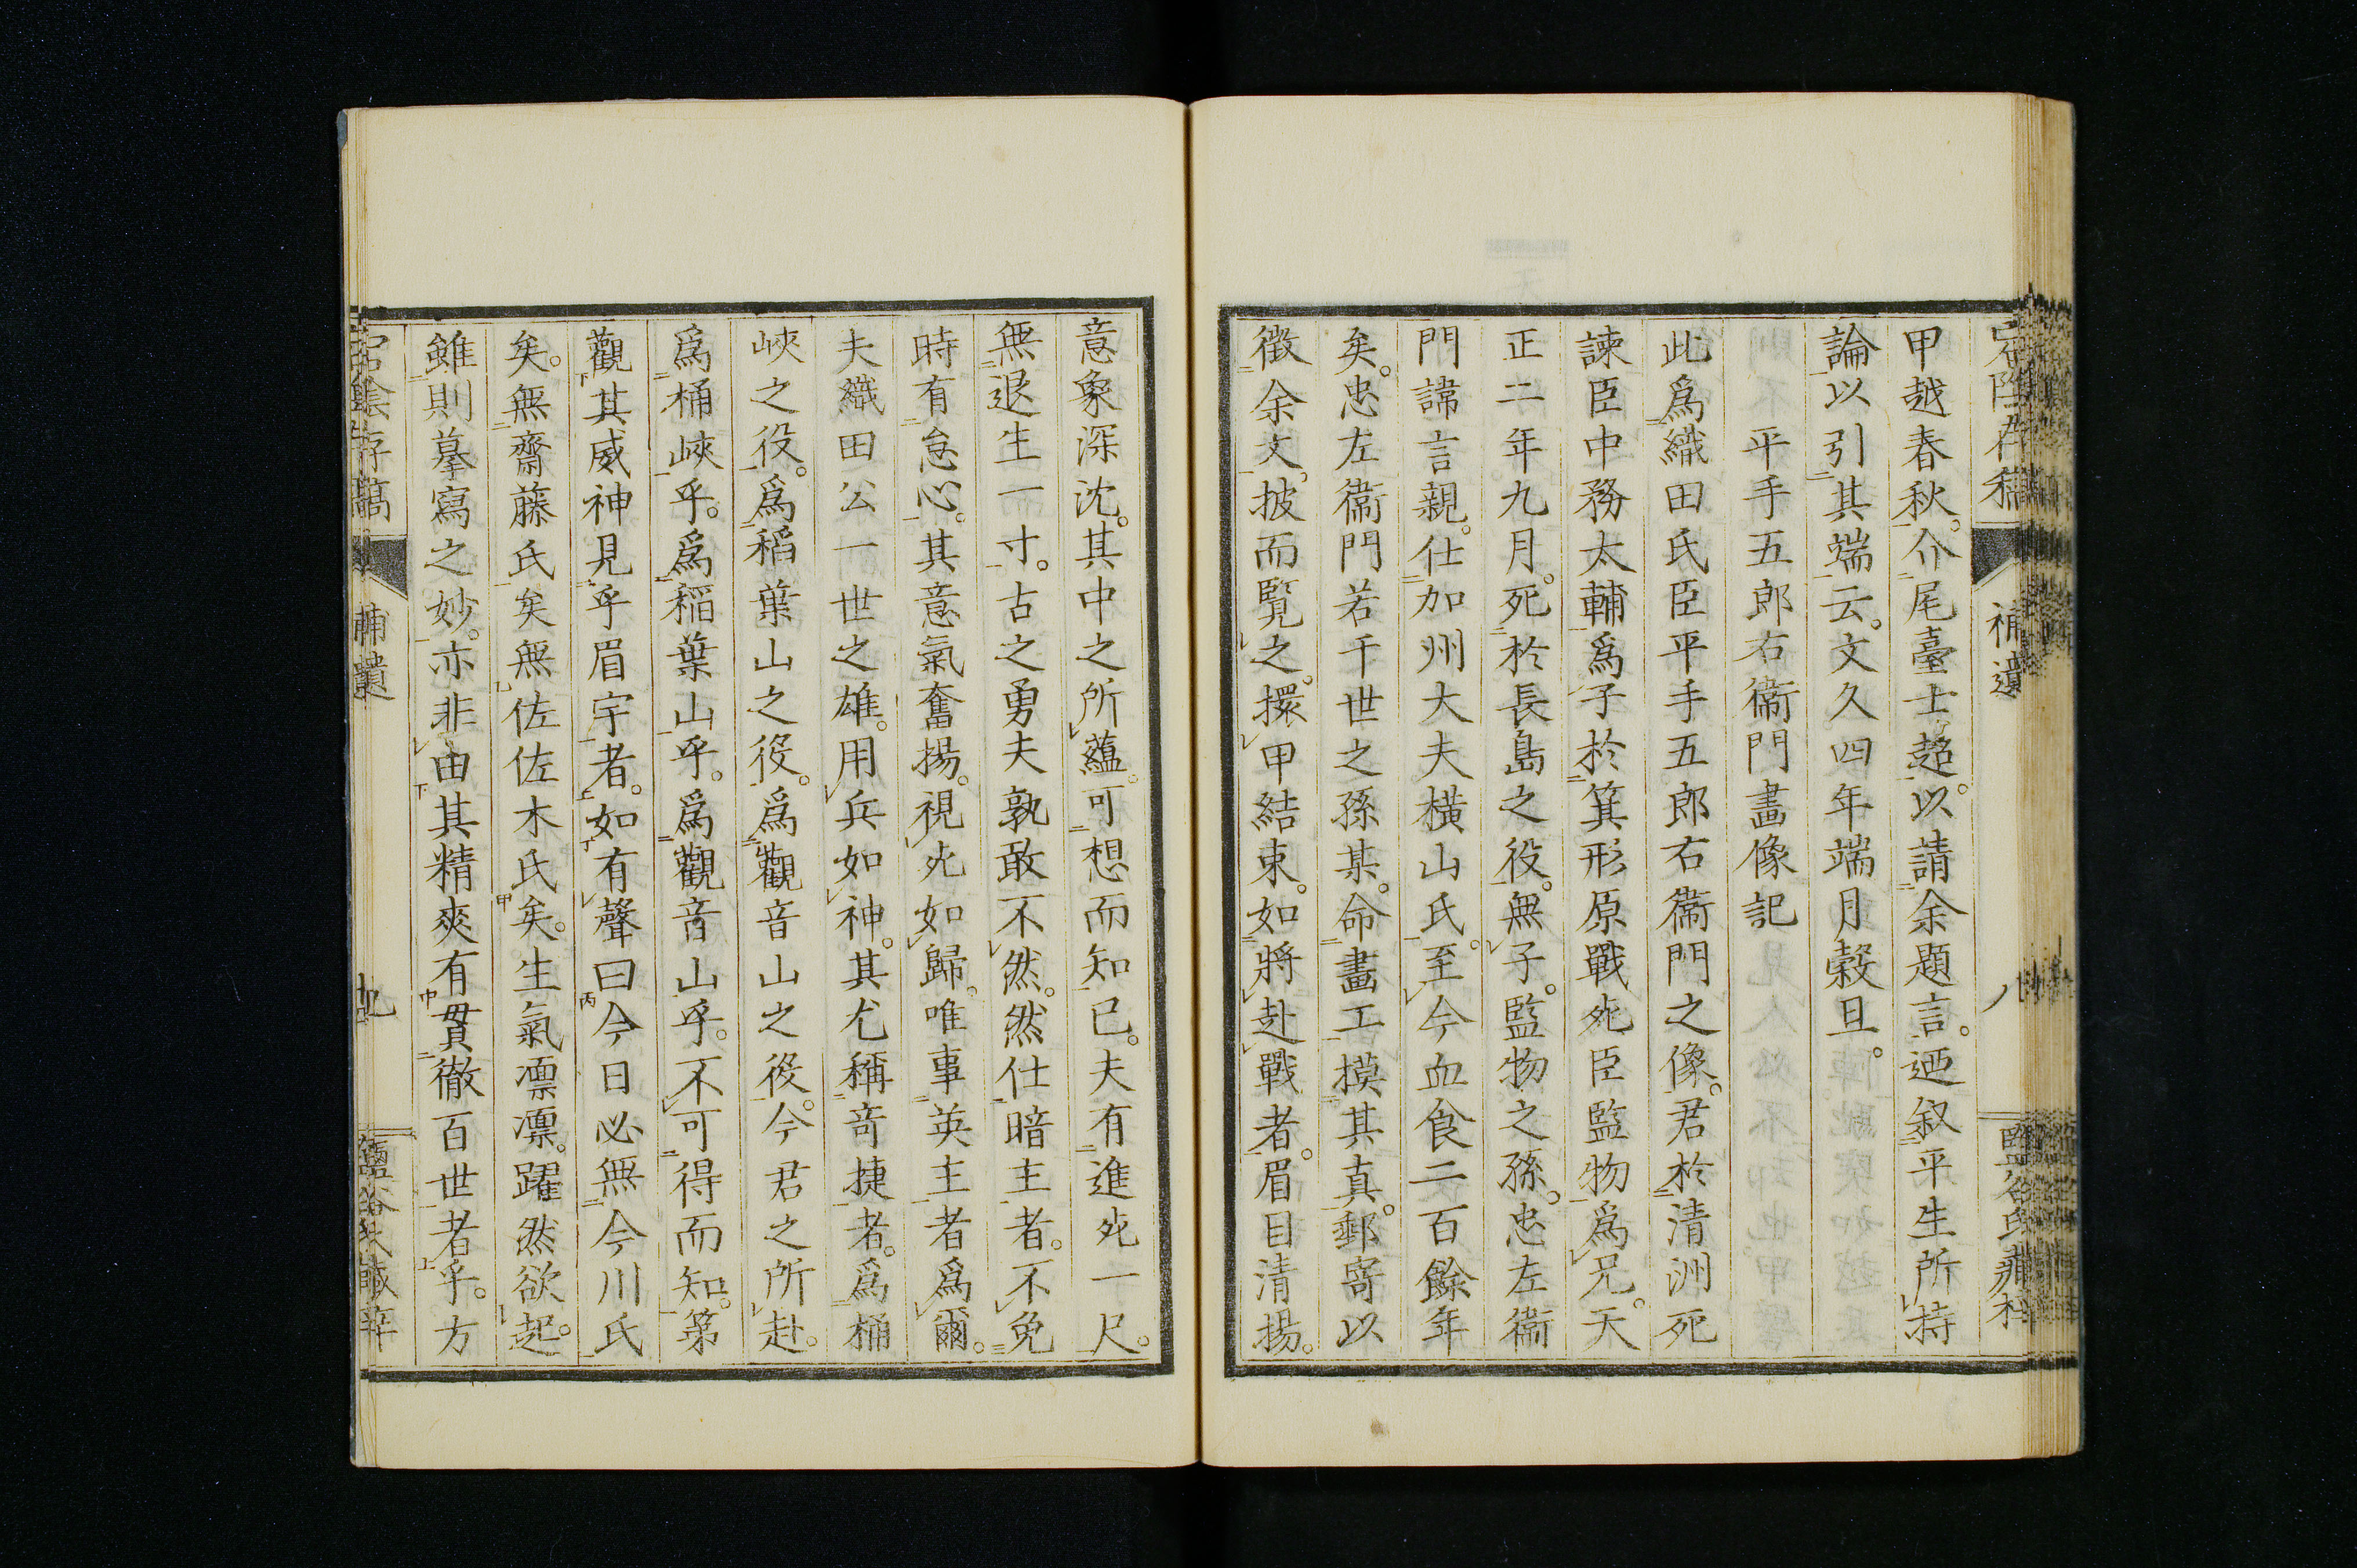 甲越春秋。介尾臺士超。以請余題言。迺叙平生所持
論以引其端云。文久四年端月穀旦。
平手五郎右衞門畫像記
此爲織田氏臣平手五郎右衞門之像。君於清洲死
諫臣中務太輔爲子於箕形原戰死臣監物爲兄。天
正二年九月。死於長島之役。無子。監物之孫。忠左衞
門諱言親。仕加州大夫橫山氏。至今血食二百餘年
矣。忠左衞門若干世之孫某。命畫工摸其真。郵寄以
徵余文。披而覽之。擐甲結束。如將赴戰者。眉目清揚。
意象深沈。其中之所蘊。可想而知已。夫有進死一尺。
無退生一寸。古之勇夫孰敢不然。然仕暗主者。不免
時有怠心。其意氣奮揚。視死如歸。唯事英主者爲爾。
夫織田公一世之雄。用兵如神。其尤稱奇捷者。爲桶
峽之役。爲稻葉山之役。爲觀音山之役。今君之所赴。
爲桶峽乎。爲稻葉山乎。爲觀音山乎。不可得而知。第
觀其威神見乎眉宇者。如有聲曰今日必無今川氏
矣。無齋藤氏矣無佐佐木氏矣。生氣凛凛。躍然欲起。
雖則摹寫之妙。亦非由其精爽有貫徹百世者乎。方
補遺
八
補遺
九